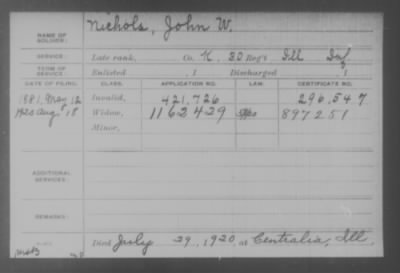 NAME OF SOLDIER: Nichols, John W.
SERVICE: Late rank, Co. K, 80 Reg't Ill Inf
TERM OF SERVICE: Enlisted , 1 Discharged , 1
DATE OF FILING. CLASS. APPLICATION NO. LAW. CERTIFICATE NO.
1881, May 12 Invalid, 421,726 296,547
1920 Aug 18 Widow, 1162429 897251
Minor,
ADDITIONAL SERVICES:
REMARKS:
Died July 29, 1920, at Centralia, Ill,